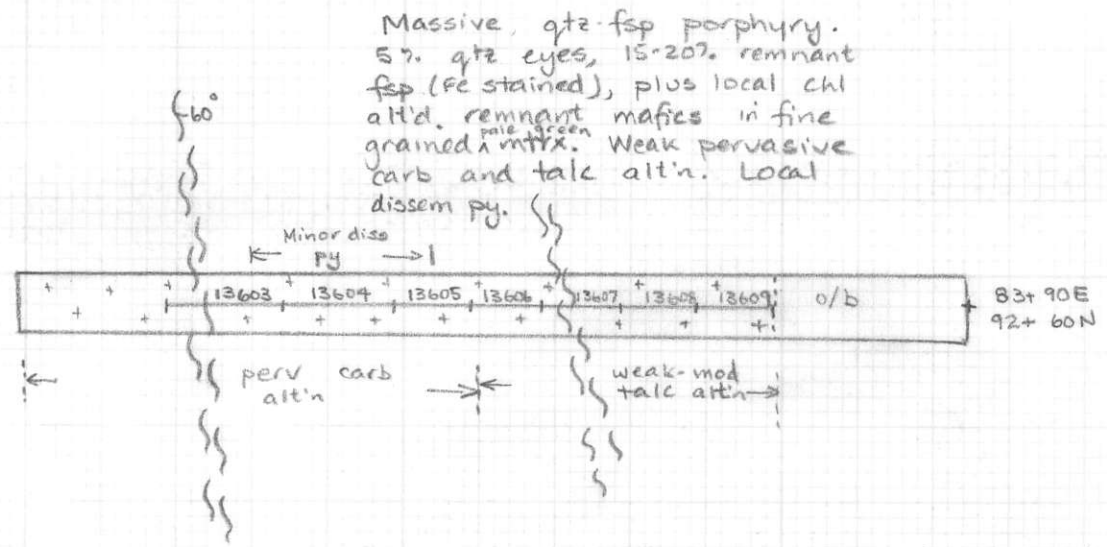 Massive qtz-fsp porphyry.
5% qtz eyes, 15-20% remnant
fsp (Fe stained), plus local chl
alt'd. remnant mafics in fine
grained pale green mtrx. Weak pervasive
carb and talc alt'n. Local
dissem py.
60°
Minor diss
py
13603 13604 13605 13606 13607 13608 13609 o/b
83+90E
92+60N
perv carb
alt'n
weak-mod
talc alt'n